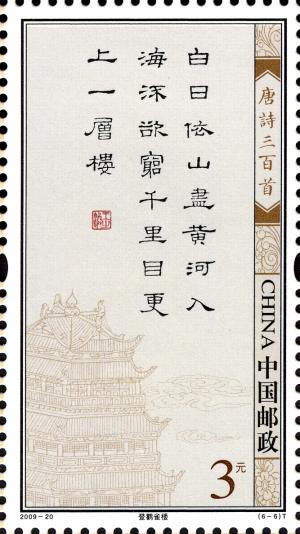 唐詩三百首
白日依山盡黃河入
海流欲窮千里目更
上一層樓
CHINA 中国邮政
3元
2009-20
登鹳雀楼
(6-6)T